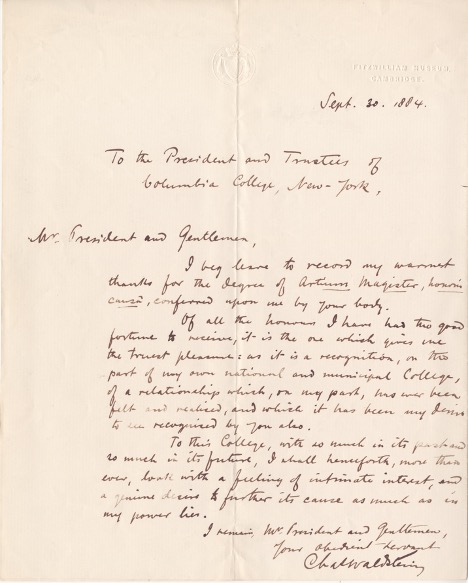 FITZWILLIAM MUSEUM,
CAMBRIDGE.
Sept. 30. 1884.
To the President and Trustees of
Columbia College, New-York,
Mr. President and Gentlemen,
I beg leave to record my warmest
thanks for the degree of Artium Magister, honoris
causâ, conferred upon me by your body.
Of all the honours I have had the good
fortune to receive, it is the one which gives me
the truest pleasure: as it is a recognition, on the
part of my own national and municipal College,
of a relationship which, on my part, has ever been
felt and realised, and which it has been my desire
to see recognised by you also.
To this College, with so much in its past and
so much in its future, I shall henceforth, more than
ever, look with a feeling of intimate interest, and
a genuine desire to further its cause as much as in
my power lies.
I remain, Mr President and Gentlemen,
Your obedient servant
Chas Waldstein